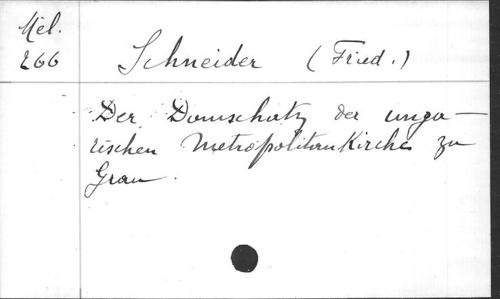 Mél.
266
Schneider (Fried.)
Der Domschatz der unga-
rischen Metropolitankirche zu
Gran.